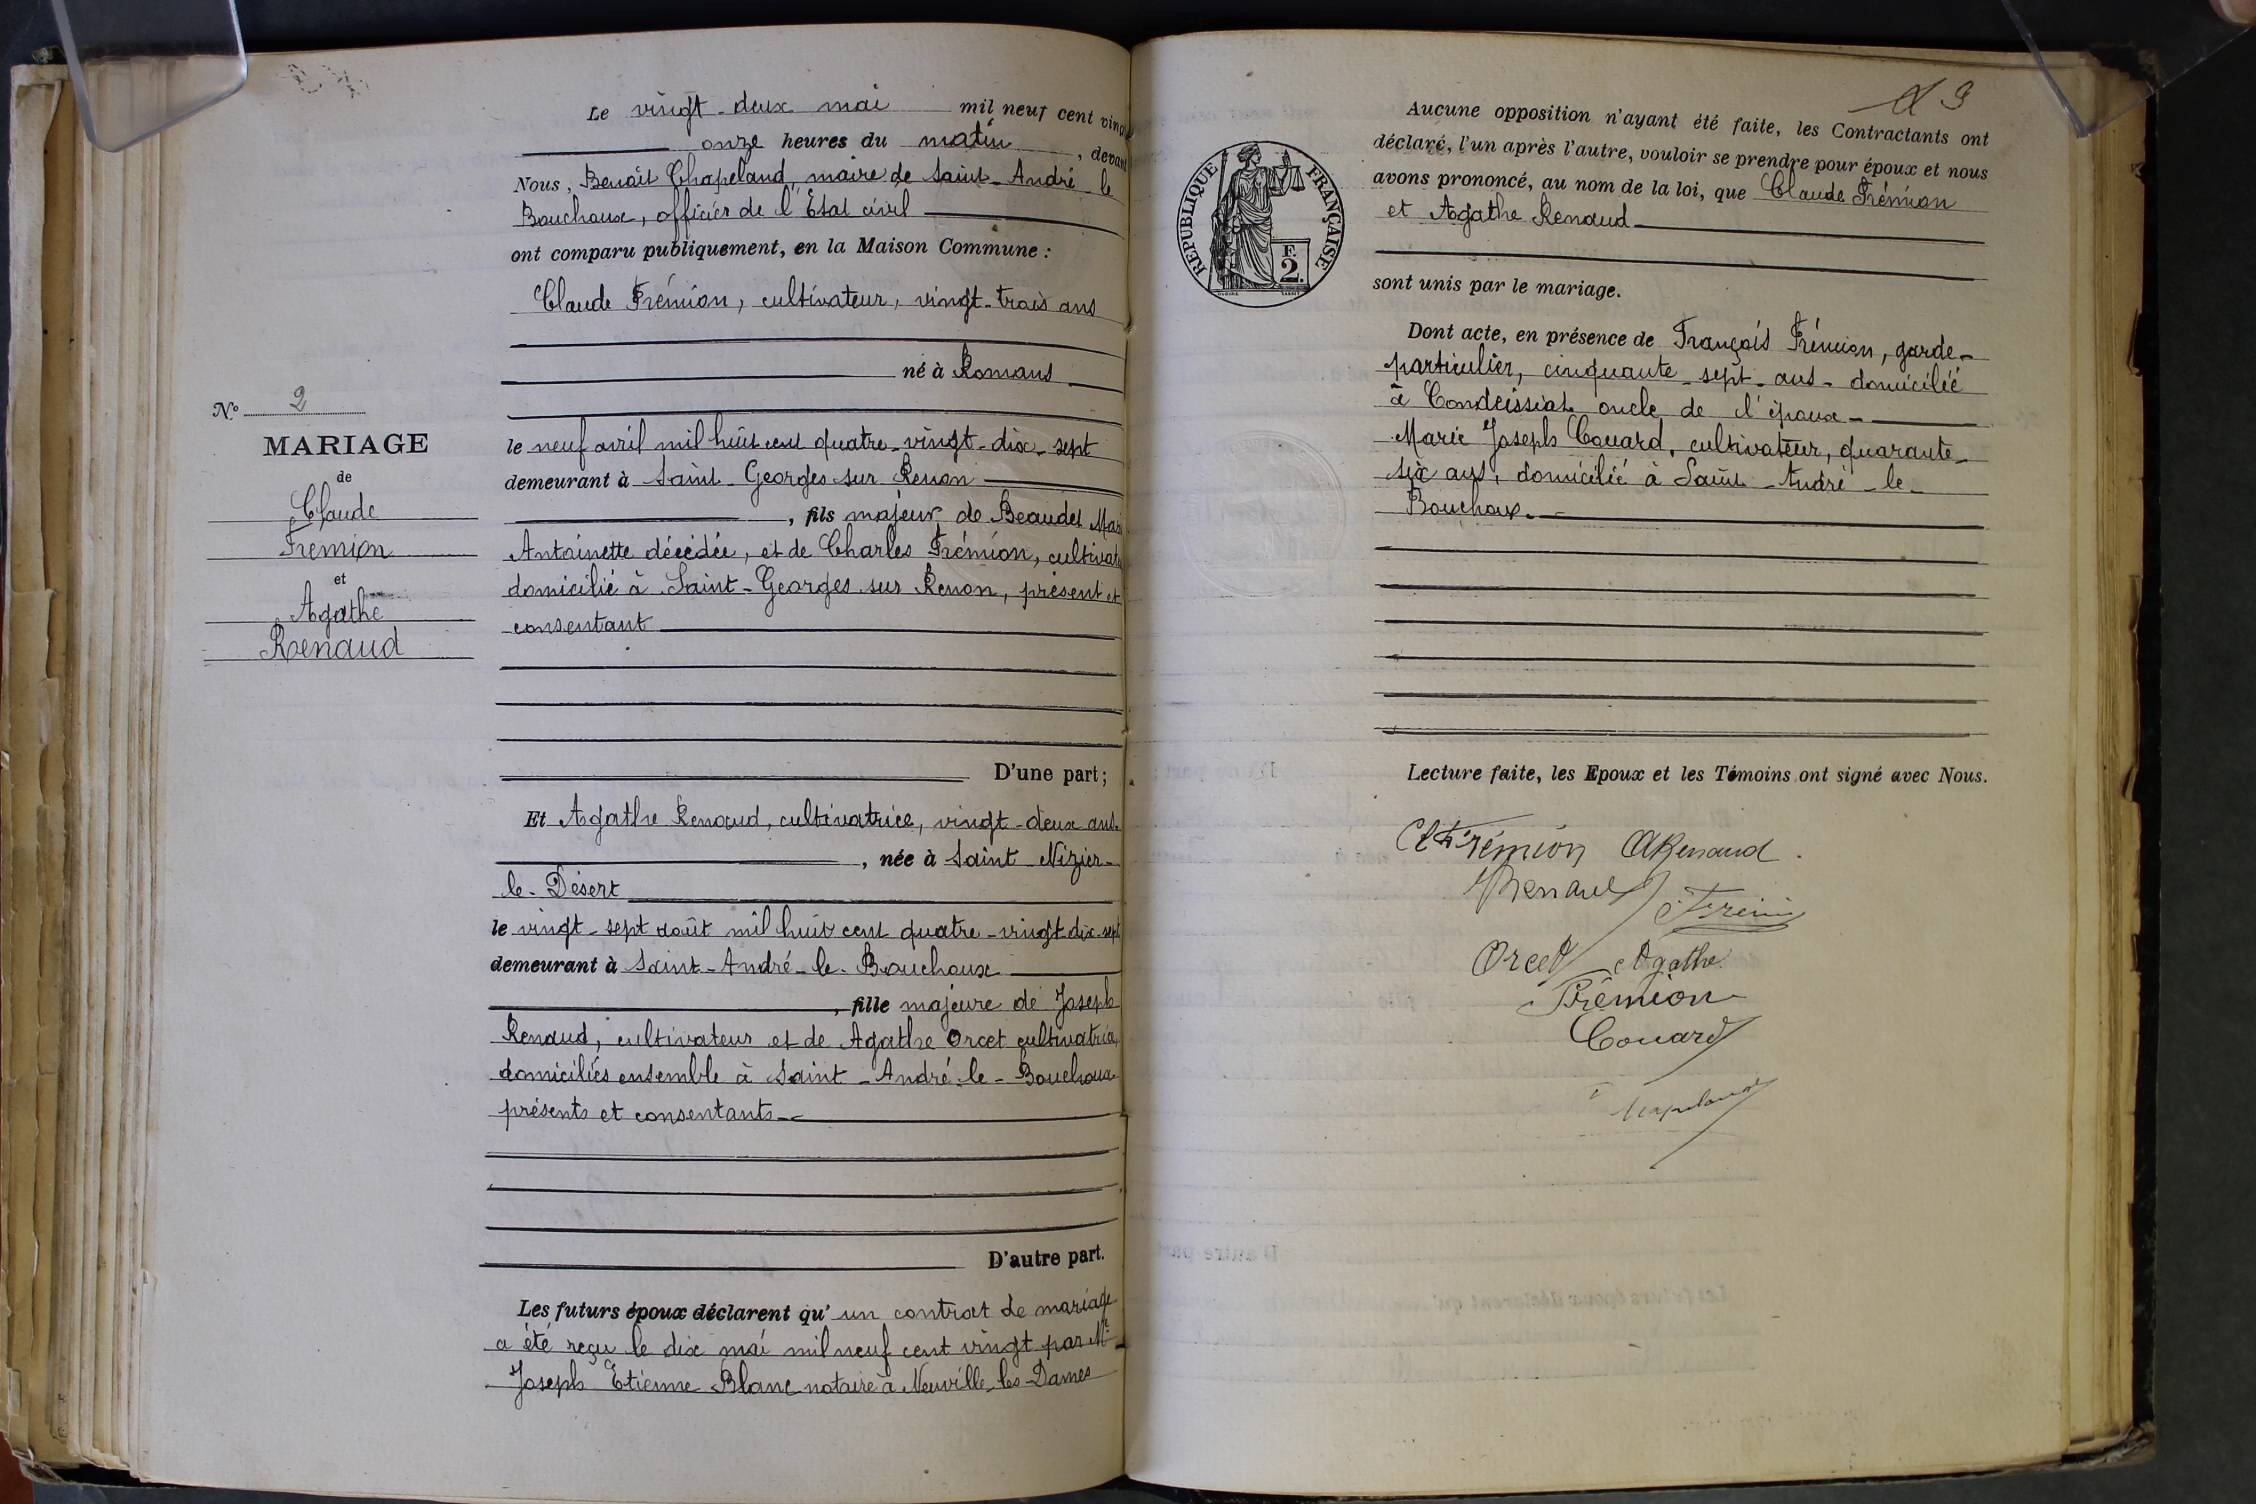 Le vingt-deux mai mil neuf cent ving
onze heures du matin, devant
Nous, Benoît Chapeland, maire de Saint-André le
Bouchoux, officier de l'État civil
ont comparu publiquement, en la Maison Commune :
Claude Frémion, cultivateur, vingt-trois ans
né à Romans
le neuf avril mil huit cent quatre-vingt-dix-sept
demeurant à Saint-Georges sur Renon
, fils majeur de Beaudet Mari
Antoinette décédée, et de Charles Frémion, cultivate
domicilié à Saint-Georges sur Renon, présent et
consentant
D'une part;
Et Agathe Renaud, cultivatrice, vingt-deux ans.
, née à Saint Nizier-
le-Désert
le vingt-sept août mil huit cent quatre-vingt-dix-sept
demeurant à Saint-André-le-Bouchoux
, fille majeure de Joseph
Renaud, cultivateur et de Agathe Orcet cultivatrice,
domiciliés ensemble à Saint-André-le-Bouchoux
présents et consentants
D'autre part.
Les futurs époux déclarent qu'un contrat de mariage
a été reçu le dix mai mil neuf cent vingt par Me
Joseph Etienne Blanc notaire à Neuville-les-Dames
No 2
MARIAGE
de
Claude
Fremion
et
Agathe
Renaud
9
RÉPUBLIQUE FRANÇAISE
F.
2
Aucune opposition n'ayant été faite, les Contractants ont
déclaré, l'un après l'autre, vouloir se prendre pour époux et nous
avons prononcé, au nom de la loi, que Claude Frémion
et Agathe Renaud
sont unis par le mariage.
Dont acte, en présence de François Frémion, garde-
particulier, cinquante-sept-ans-domicilié
à Condeissiat oncle de l'époux-
Marie Joseph Couard, cultivateur, quarante-
six ans, domicilié à Saint-André-le-
Bouchoux.
Lecture faite, les Epoux et les Témoins ont signé avec Nous.
Cl Frémion ARenaud.
Renaud
Orcet Agathe
Frémion
Couard